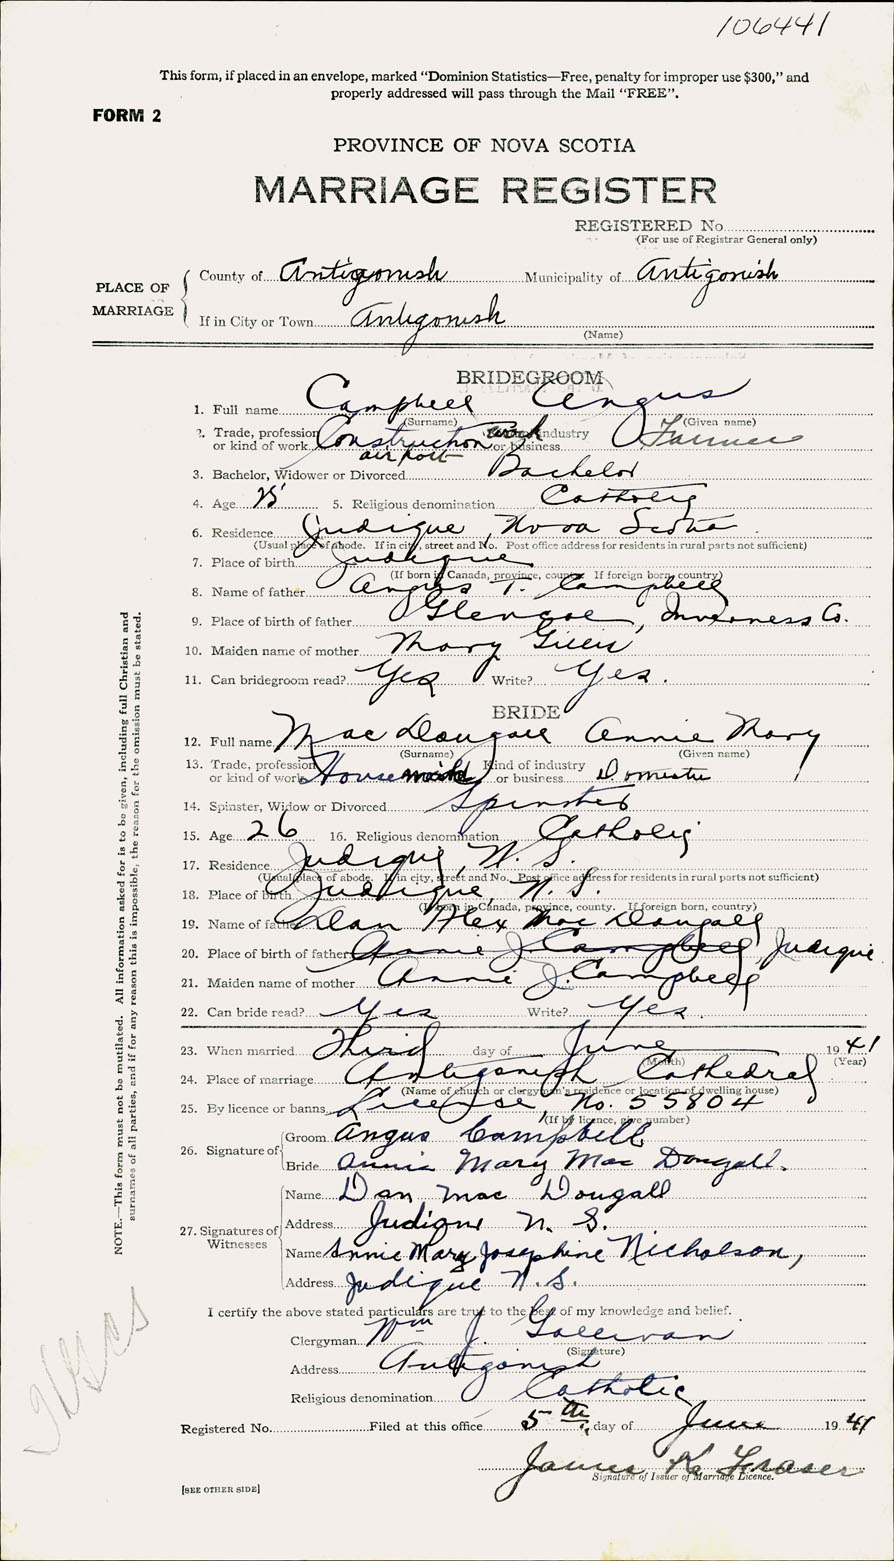 106441
This form, if placed in an envelope, marked “Dominion Statistics—Free, penalty for improper use $300,” and
properly addressed will pass through the Mail “FREE”.
FORM 2
PROVINCE OF NOVA SCOTIA
MARRIAGE REGISTER
REGISTERED No.
(For use of Registrar General only)
PLACE OF MARRIAGE
County of Antigonish Municipality of Antigonish
If in City or Town Antigonish
(Name)
BRIDEGROOM
1. Full name Campbell Angus
(Surname) (Given name)
2. Trade, profession Construction work industry Farmer
or kind of work air port or business
3. Bachelor, Widower or Divorced Bachelor
4. Age 5. Religious denomination Catholic
6. Residence Judique, Nova Scotia
(Usual place of abode. If in city, street and No. Post office address for residents in rural parts not sufficient)
7. Place of birth Judique
(If born in Canada, province, county. If foreign born, country)
8. Name of father Angus T. Campbell
9. Place of birth of father Glencoe, Inverness Co.
10. Maiden name of mother Mary Gillis
11. Can bridegroom read? Yes Write? Yes.
BRIDE
12. Full name MacDougall Annie Mary
(Surname) (Given name)
13. Trade, profession Housemaid Kind of industry
or kind of work or business Domestic
14. Spinster, Widow or Divorced Spinster
15. Age 26 16. Religious denomination Catholic
17. Residence Judique, N. S.
(Usual place of abode. If in city, street and No. Post office address for residents in rural parts not sufficient)
18. Place of birth Judique, N. S.
(If born in Canada, province, county. If foreign born, country)
19. Name of father Dan Alex MacDougall
20. Place of birth of father Annie J. Campbell, Judique
21. Maiden name of mother Annie J. Campbell
22. Can bride read? Yes Write? Yes.
23. When married Third day of June 19 41
(Month) (Year)
24. Place of marriage Antigonish Cathedral
(Name of church or clergyman's residence or location of dwelling house)
25. By licence or banns License, No. 55804
(If by licence, give number)
26. Signature of
Groom Angus Campbell
Bride Annie Mary MacDougall.
27. Signatures of Witnesses
Name Dan MacDougall
Address Judique N. S.
Name Annie Mary Josephine Nicholson,
Address Judique N.S.
I certify the above stated particulars are true to the best of my knowledge and belief.
Clergyman Wm J. Gallivan
(Signature)
Address Antigonish
Religious denomination Catholic
Registered No. Filed at this office 5th day of June 19 41
James K. Fraser
Signature of Issuer of Marriage Licence.
[SEE OTHER SIDE]
NOTE.—This form must not be mutilated. All information asked for is to be given, including full Christian and
surnames of all parties, and if for any reason this is impossible, the reason for the omission must be stated.